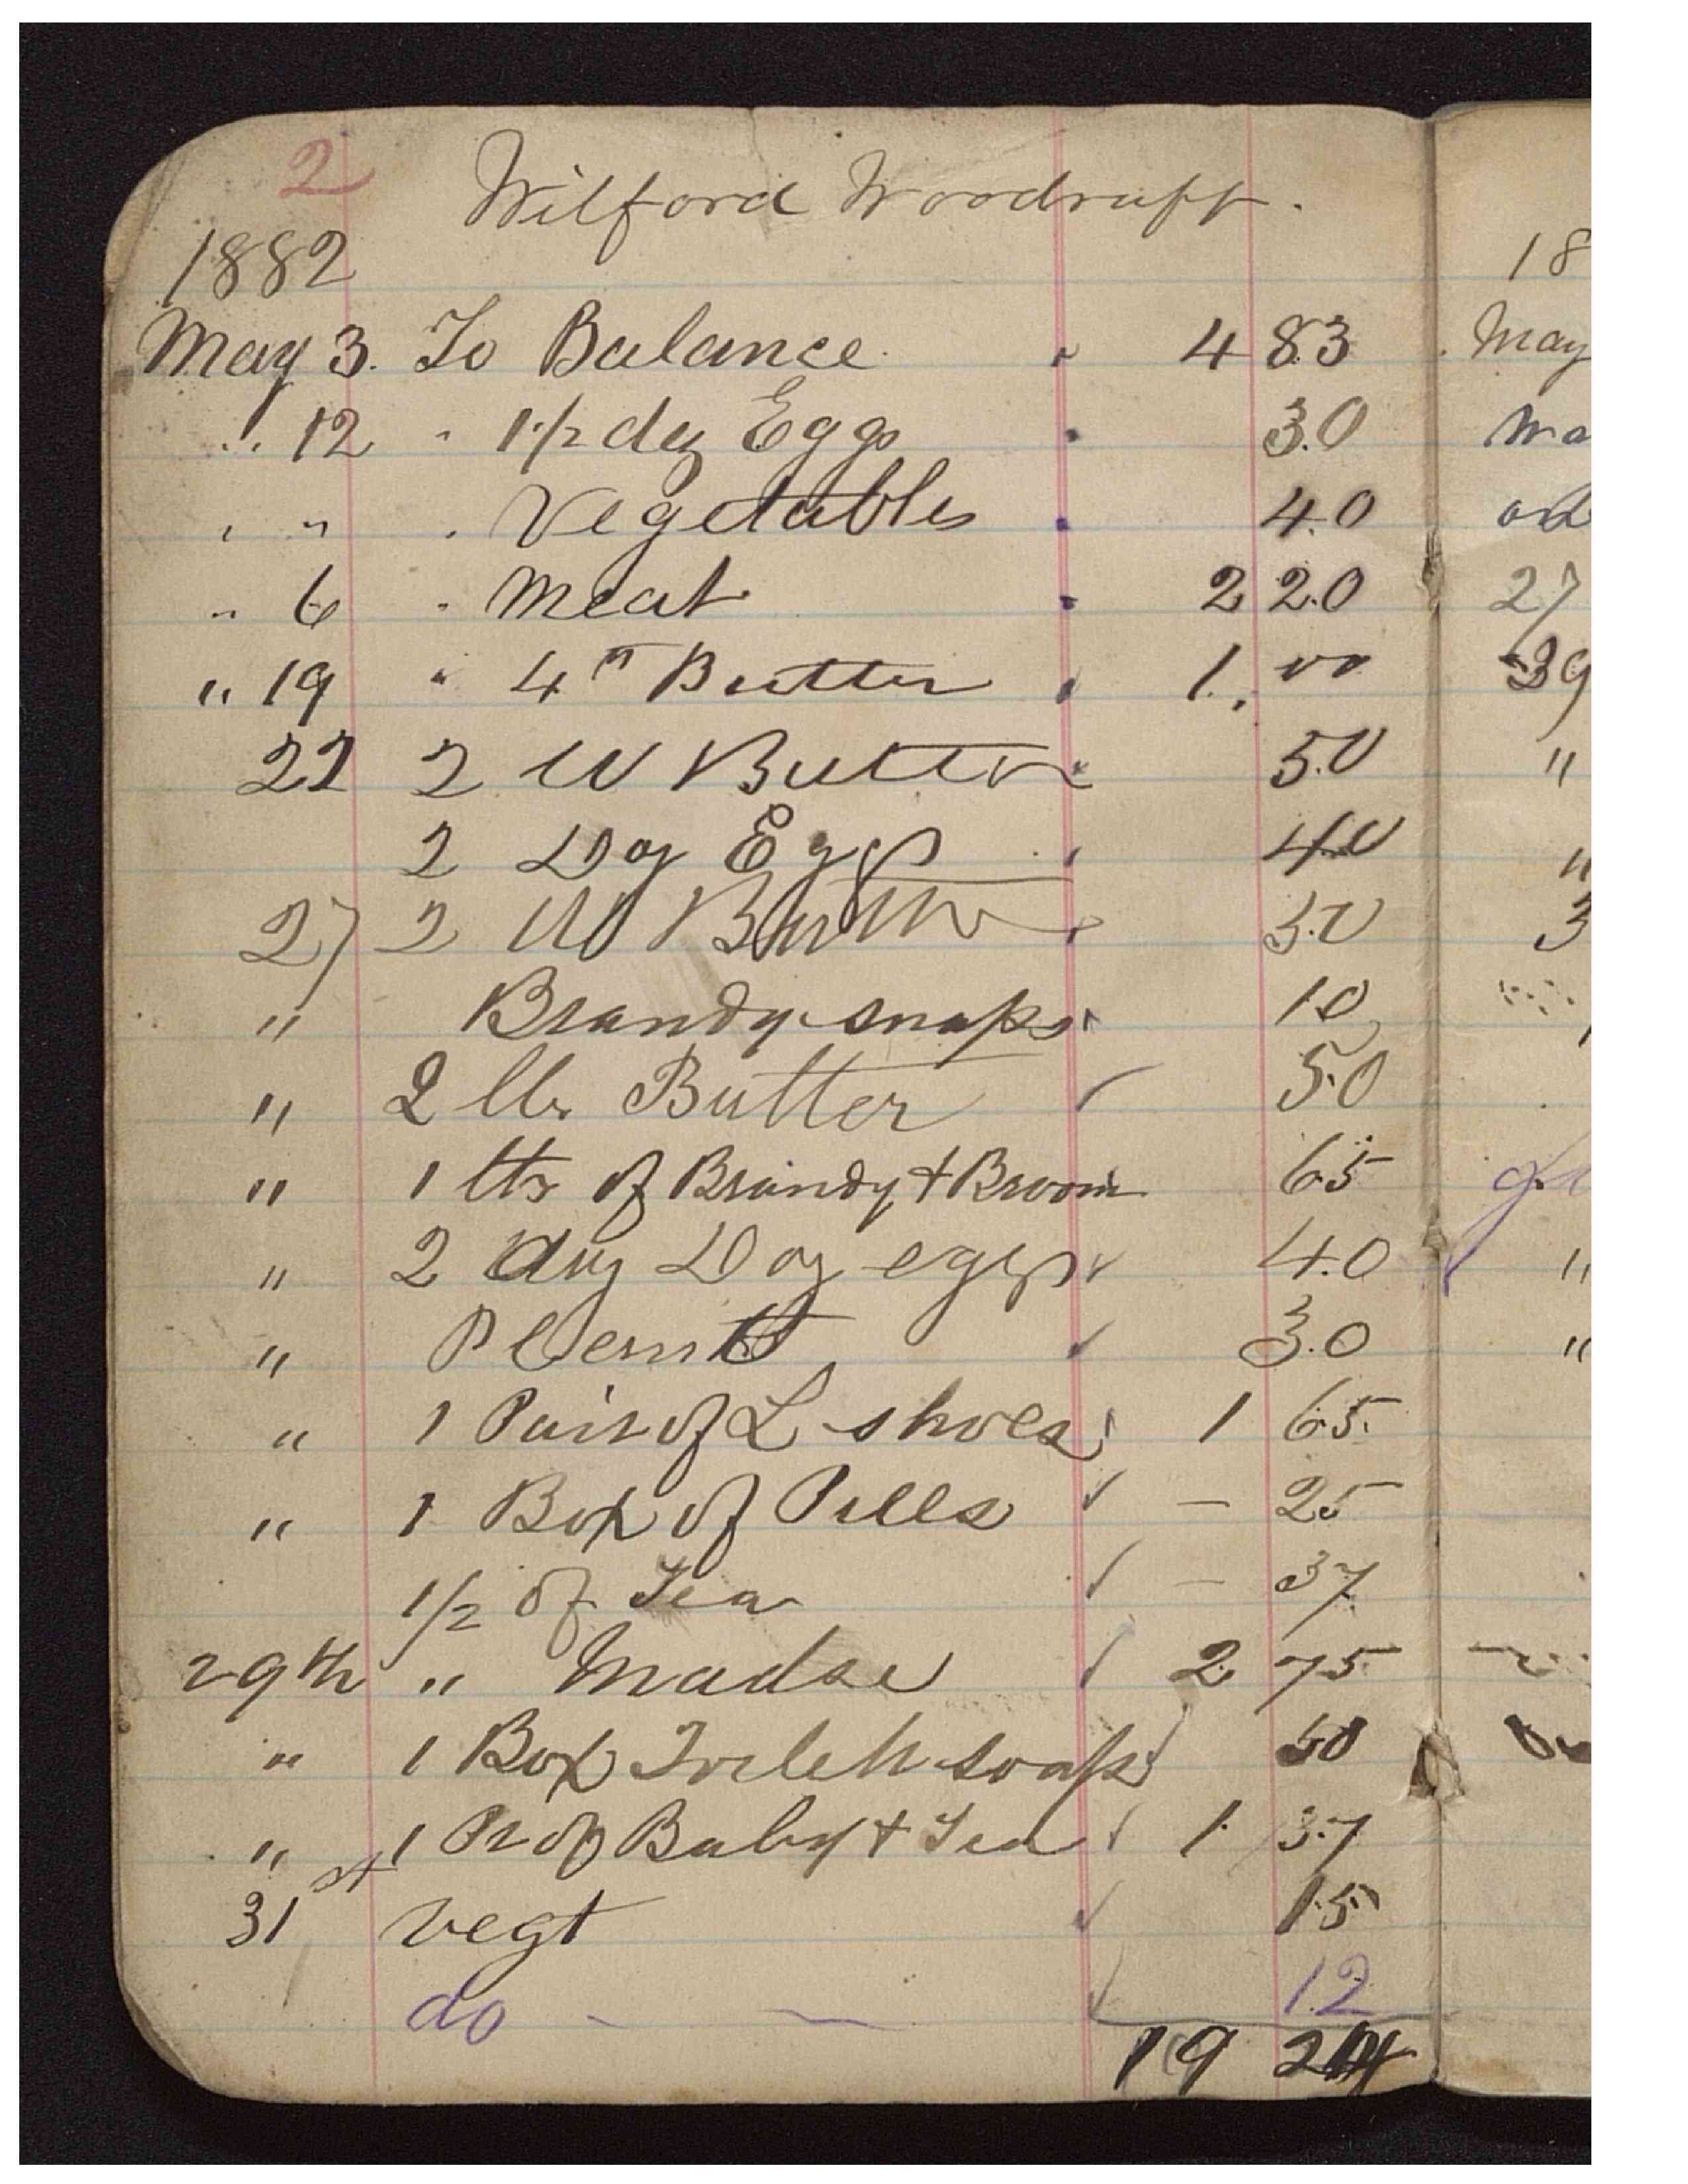 2
Wilford Woodruff.
1882
May 3. To Balance 4 83
" 12 " 1 1/2 dz Eggs 30
" " " Vegetables 40
" 6 " Meat 2 20
" 19 " 4 Butter 1.00
22 2 lb Butter 50
2 Doz Eggs 40
27 2 lb Butter 50
" Brandy snaps 10
" 2 lbs Butter 50
" 1 of Brandy & Broom 65
" 2 Doz eggs 40
" 30
" 1 Pair of L shoes 1 65
" 1 Box of Pills – 25
1/2 of Tea – 37
29th " Madse 2 75
" 1 Box soap 50
" 1 Pr of Baby & Tea 1 37
31st vegt 15
do – – 12
19 24
18
May
27
39
"
"
3
"
"